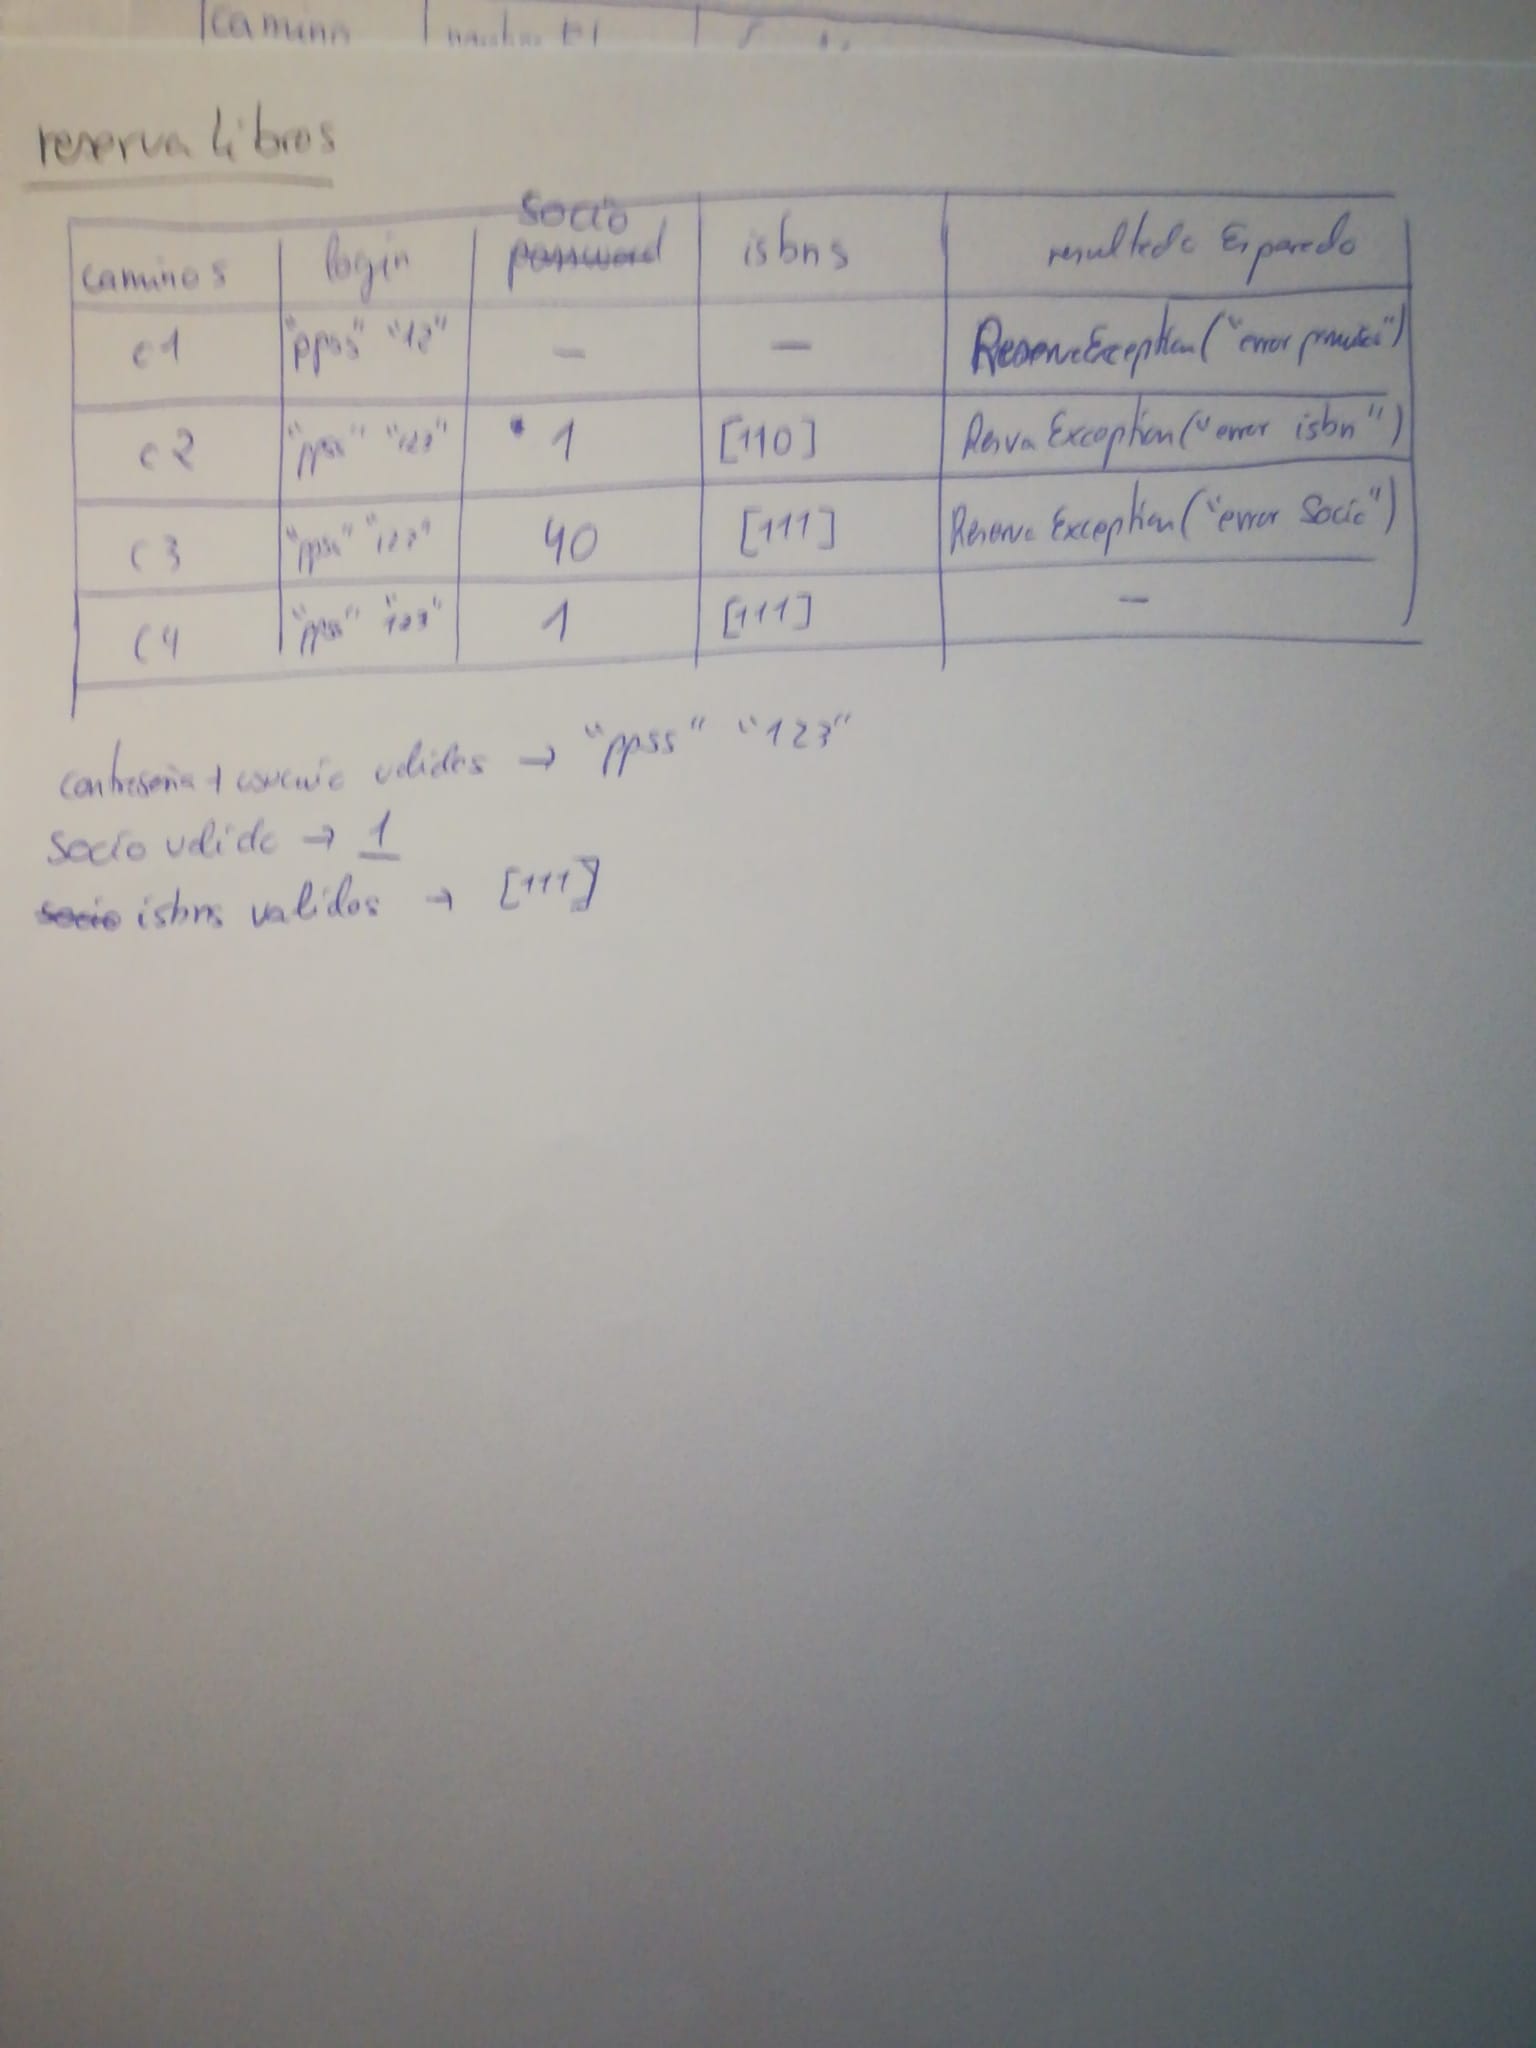 camino
reserva libros
caminos login socio password isbns resultado Esperado
c1 "ppss" "12" — — ReservaException("error permisos")
c2 "ppss" "123" 1 [110] Resrva Exception("error isbn")
c3 "ppss" "123" 40 [111] Reserva Exception("error Socio")
C4 "ppss" "123" 1 [111] —
contraseña + usuario validos → "ppss" "123"
Socio valido → 1
socio isbns validos → [111]